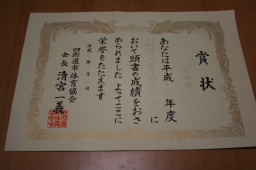 賞状
あなたは平成 年度
に
おいて頭書の成績をおさ
められました よってここに
栄誉をたたえます
平成 年 月 日
四街道市体育協会
会長 清宮一義